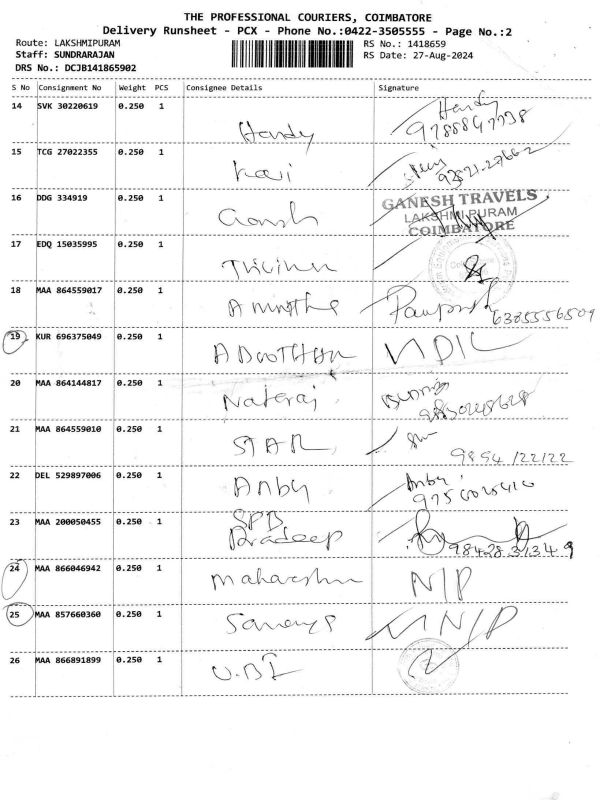 THE PROFESSIONAL COURIERS, COIMBATORE
Delivery Runsheet - PCX - Phone No.:0422-3505555 - Page No.:2
Route: LAKSHMIPURAM
RS No.: 1418659
Staff: SUNDRARAJAN
RS Date: 27-Aug-2024
DRS No.: DCJB141865902
S No Consignment No Weight PCS Consignee Details Signature
14 SVK 30220619 0.250 1 Handy Handy
9788847738
15 TCG 27022355 0.250 1
16 DDG 334919 0.250 1 GANESH TRAVELS
LAKSHMIPURAM
COIMBATORE
17 EDQ 15035995 0.250 1
18 MAA 864559017 0.250 1
6385556509
19 KUR 696375049 0.250 1
20 MAA 864144817 0.250 1 Nataraj
21 MAA 864559010 0.250 1 STAR
9894122122
22 DEL 529897006 0.250 1 Anby Anby
23 MAA 200050455 0.250 1 SPB
Pradeep
24 MAA 866046942 0.250 1 N/P
25 MAA 857660360 0.250 1 N/P
26 MAA 866891899 0.250 1 U.B.I